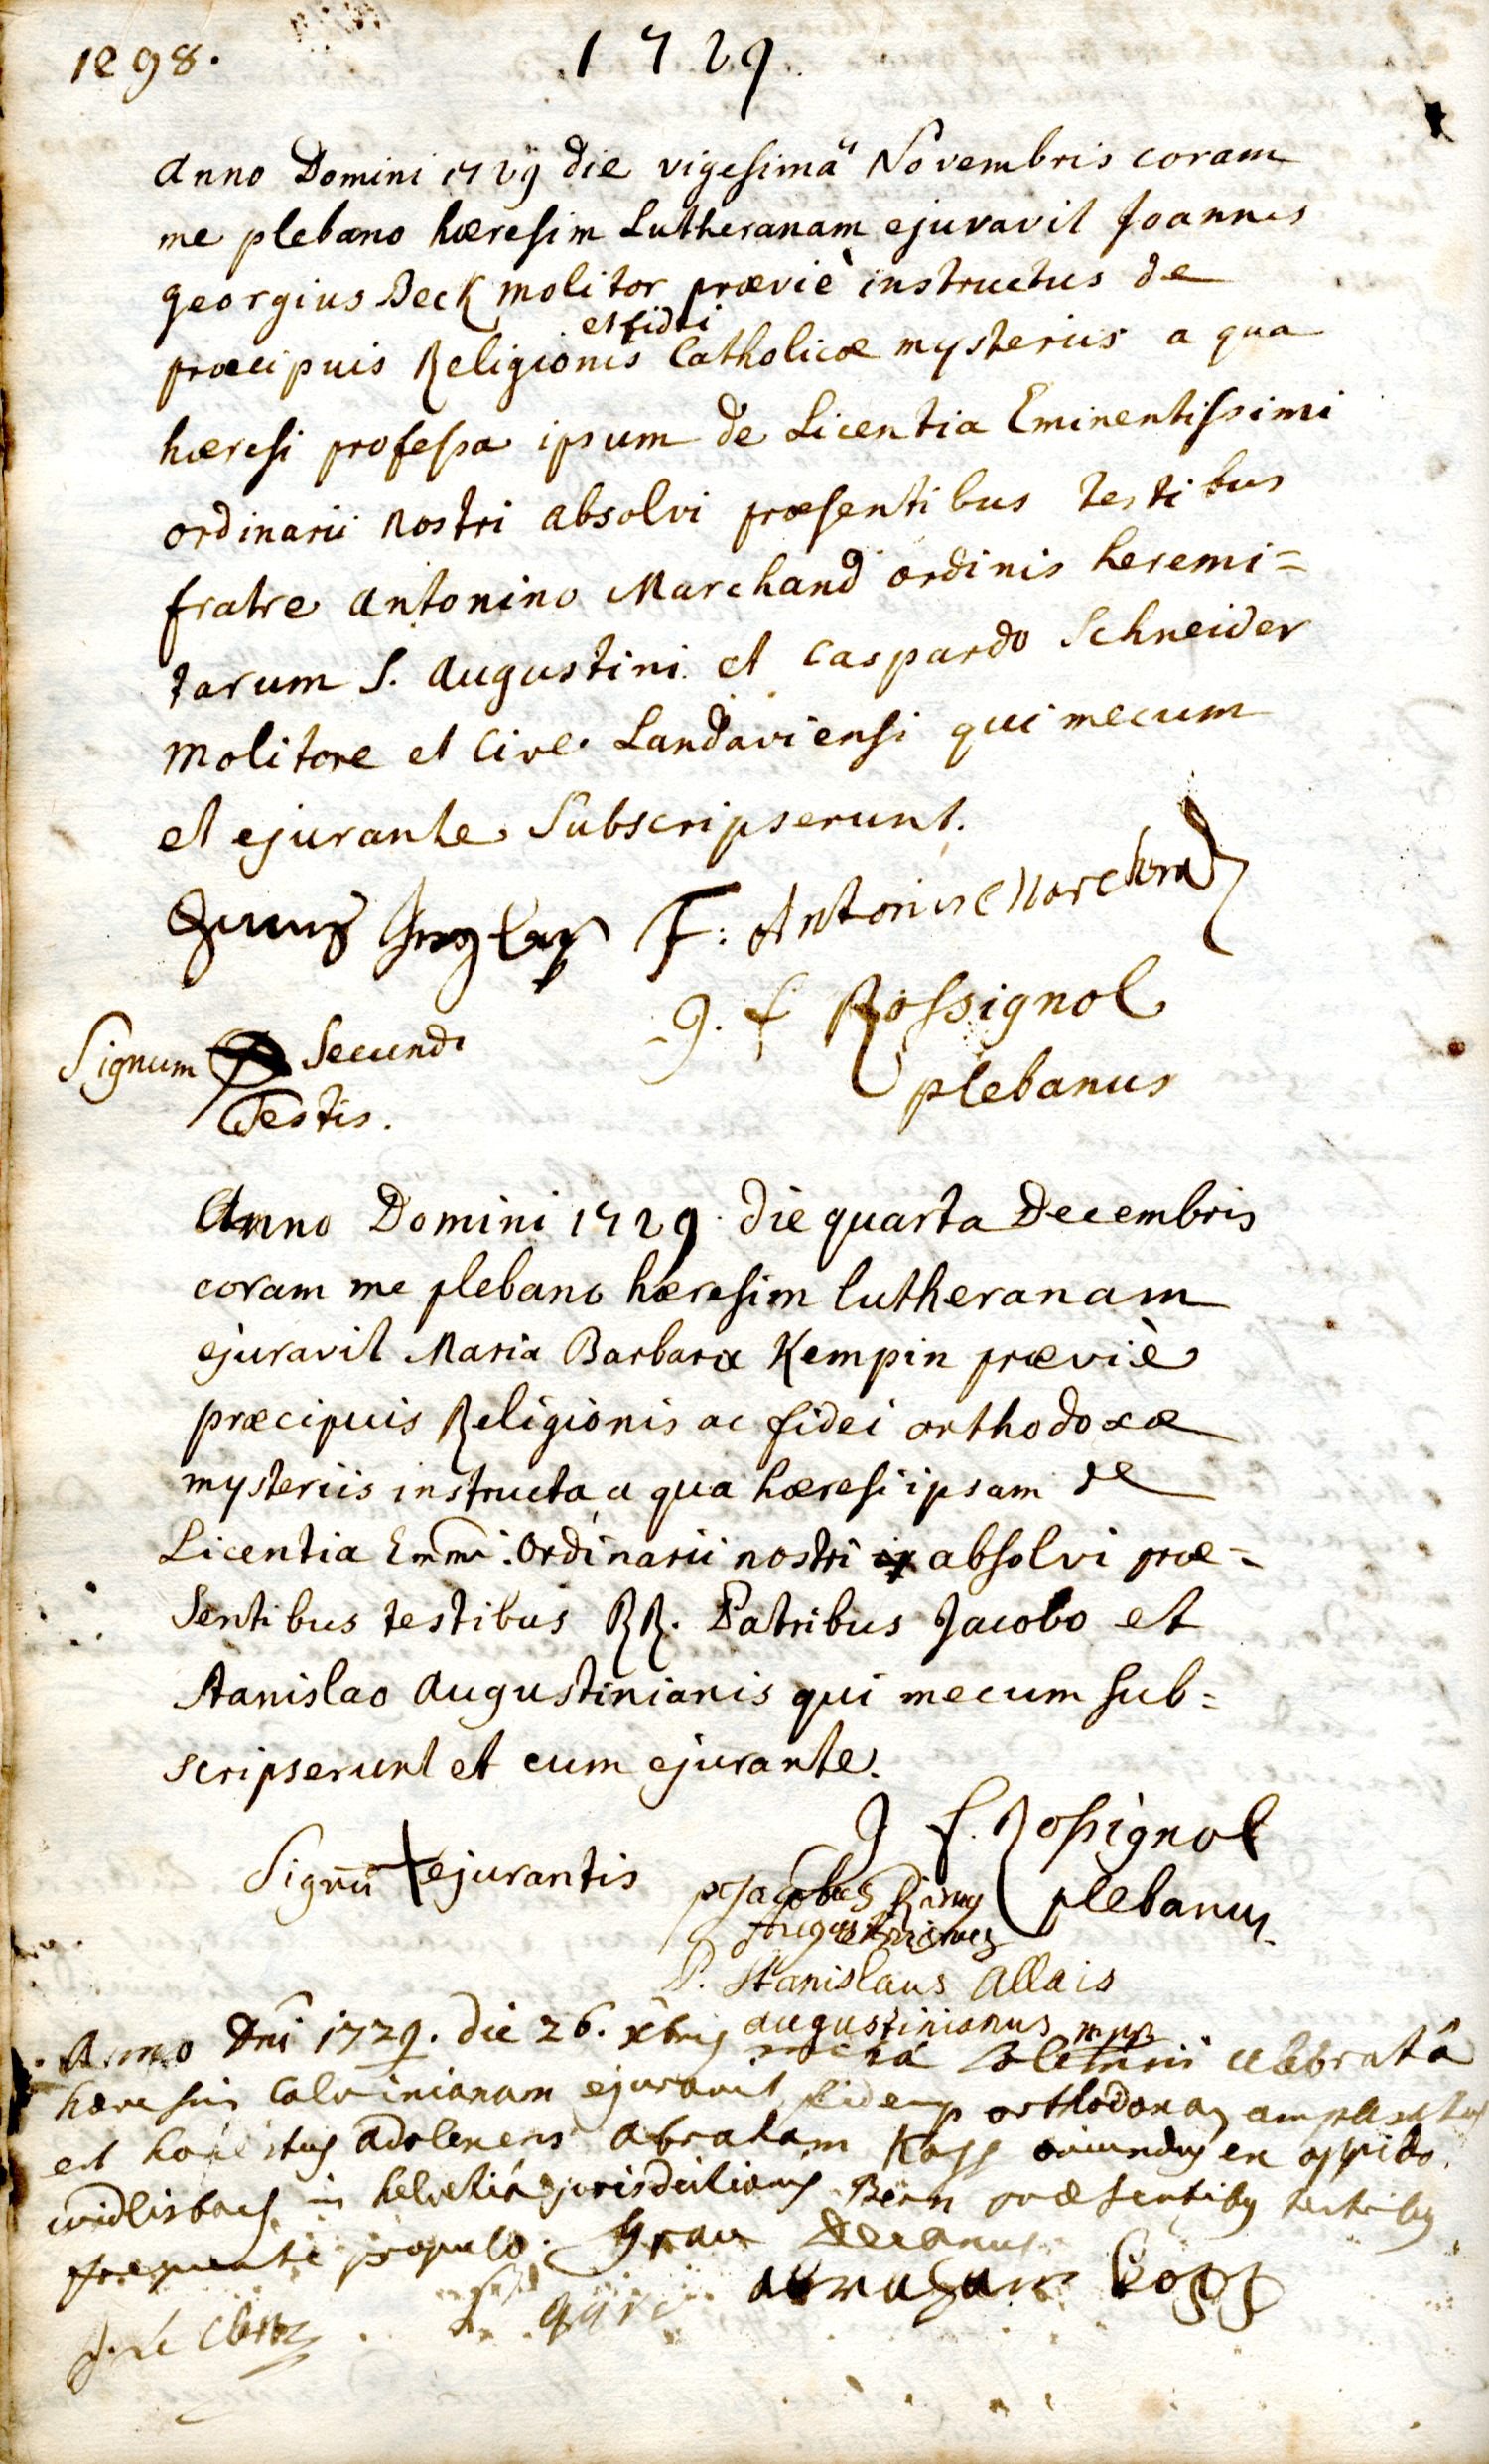 1298.
1729
Anno Domini 1729 die vigesimâ Novembris coram
me plebano hæresim Lutheranam ejuravit Joannes
Georgius Beck molitor præviè instructus de
et fidei
præcipuis Religionis Catholicæ mysteriis a qua
hæresi professa ipsum de Licentia Eminentissimi
ordinarii nostri absolvi præsentibus testibus
fratre Antonino Marchand ordinis heremi=
tarum S. Augustini et Caspardo Schneider
molitore et Cive Landaviensi qui mecum
et ejurante subscripserunt.
F: Antonin Marchand
J. f Rossignol
Signum Secundi
plebanus
Testis.
Anno Domini 1729 die quarta Decembris
coram me plebano hæresim lutheranam
ejuravit Maria Barbara Kempin præviè
præcipuis Religionis ac fidei orthodoxæ
mysteriis instructa a qua hæresi ipsam de
Licentia Em̄mi. Ordinarii nostri absolvi præ=
sentibus testibus RR. Patribus Jacobo et
Stanislao Augustinianis qui mecum sub=
scripserunt et cum ejurante.
J f. Rossignol
Signū + ejurantis
plebanus
p Jacobus
Augustinianus
P. Stanislaus Allais
augustinianus mpp
Anno Dni 1729. die 26. xbris solemni celebratâ
hæresim Calvinianam ejuravit fidemq orthodoxam amplexatus
est honestus adolescens Abraham Kopp oriundus ex oppido
widlisbach in helvetiâ jurisdictionis Bern præsentibus testibus
frequenti populo. Grau Decanus
Abraham Kopp
J. Le Clerc